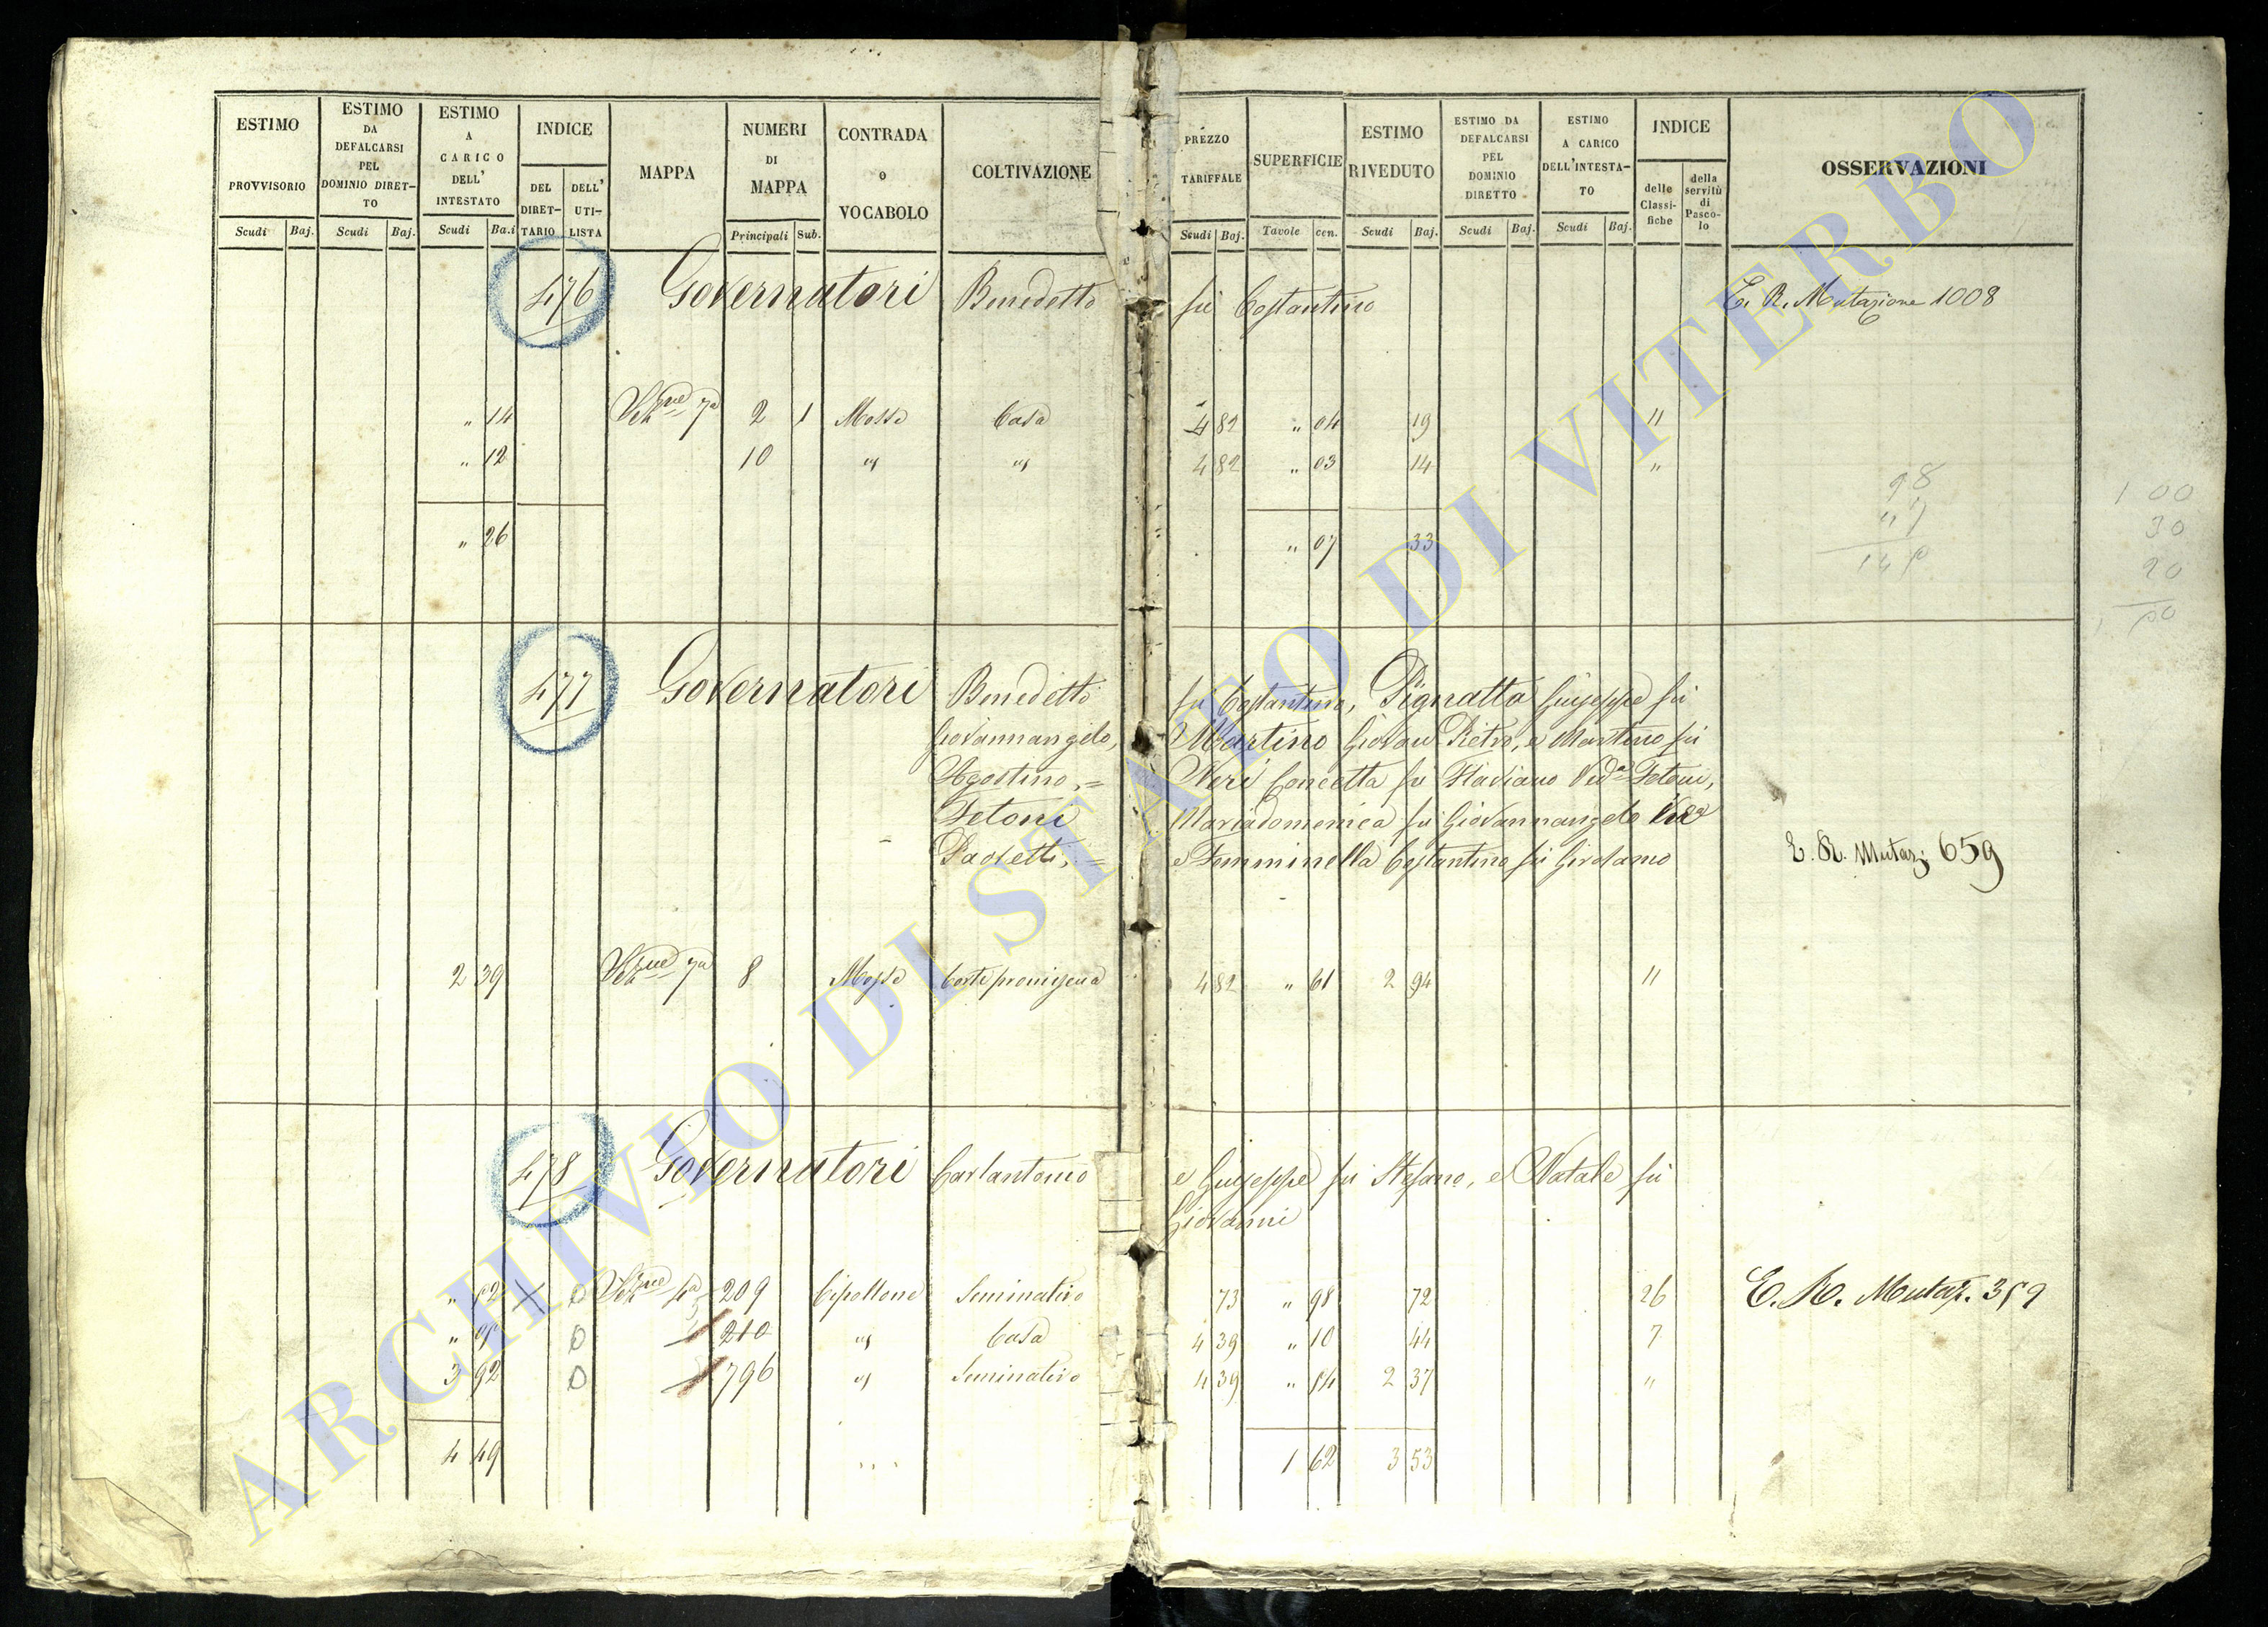 ESTIMO PROVVISORIO Scudi Baj.
ESTIMO DA DEFALCARSI PEL DOMINIO DIRET-TO Scudi Baj.
ESTIMO A CARICO DELL' INTESTATO Scudi Ba.i
INDICE DEL DIRET-TARIO DELL' UTI-LISTA
MAPPA
NUMERI DI MAPPA Principali Sub.
CONTRADA o VOCABOLO
COLTIVAZIONE
PREZZO TARIFFALE Scudi Baj.
SUPERFICIE Tavole cen.
ESTIMO RIVEDUTO Scudi Baj.
ESTIMO DA DEFALCARSI PEL DOMINIO DIRETTO Scudi Baj.
ESTIMO A CARICO DELL'INTESTA-TO Scudi Baj.
INDICE delle Classi-fiche della servitù di Pasco-lo
OSSERVAZIONI
476 Governatori Benedetto fù Costantino E. R. Mutazione 1008
" 14 Sezne 7a 2 1 Mossa Casa 4 82 " 04 19 11
" 12 10 " " 4 82 " 03 14 "
" 26 " 07 33
98
47
1 00
30
20
477 Governatori Benedetto fù Costantino, Pignatta Giuseppe fù
Giovannangelo, Martino Giovan Pietro, e Martino fù
Agostino, = Neri Concetta fù Flaviano Veda Fetoni,
Fetoni Mariadomenica fù Giovannangelo Veda
Paoletti, = e Femminella Costantino fù Girolamo
E. R. Mutaz. 659
2 39 Sezne 7a 8 Mossa Corte promiscua 4 82 " 61 2 94 11
478 Governatori Carlantonio e Giuseppe fù Stefano, e Natale fù
Giovanni
" 52 X 0 Sezne 4a 209 Cipollone Seminativo 73 " 98 72 26 E. R. Mutaz. 359
" 05 0 210 " Casa 4 39 " 10 44 7
3 92 0 796 " Seminativo 4 39 " 54 2 37 "
4 49 1 62 3 53
ARCHIVIO DI STATO DI VITERBO